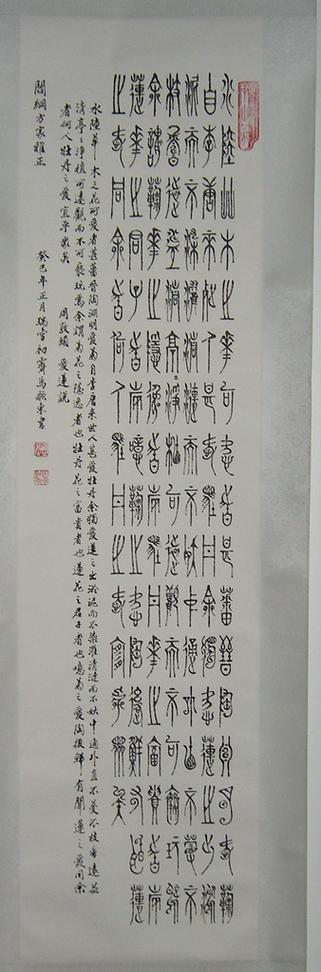 水陸艸木之華可愛者甚蕃晉陶淵明愛菊
自李唐來世人甚愛牡丹余獨愛蓮之出淤
泥而不染濯清漣而不妖中通外直不蔓不
枝香遠益清亭=淨植可遠觀而不可褻玩焉
余謂菊華之隱逸者也牡丹華之富貴者也
蓮華之君子者也噫菊之愛陶後鮮有聞蓮
之愛同余者何人牡丹之愛宜乎衆矣
水陸草木之花可愛者甚蕃晉陶淵明愛菊自李唐來世人甚愛牡丹余獨愛蓮之出淤泥而不染濯清漣而不妖中通外直不蔓不枝香遠益
清亭=淨植可遠觀而不可褻玩焉余謂菊花之隱逸者也牡丹花之富貴者也蓮花之君子者也噫菊之愛陶後鮮有聞蓮之愛同余
者何人牡丹之愛宜乎衆矣 周敦頤 愛蓮說
癸巳年正月瑞雪初霽馬東書
綱方家雅正